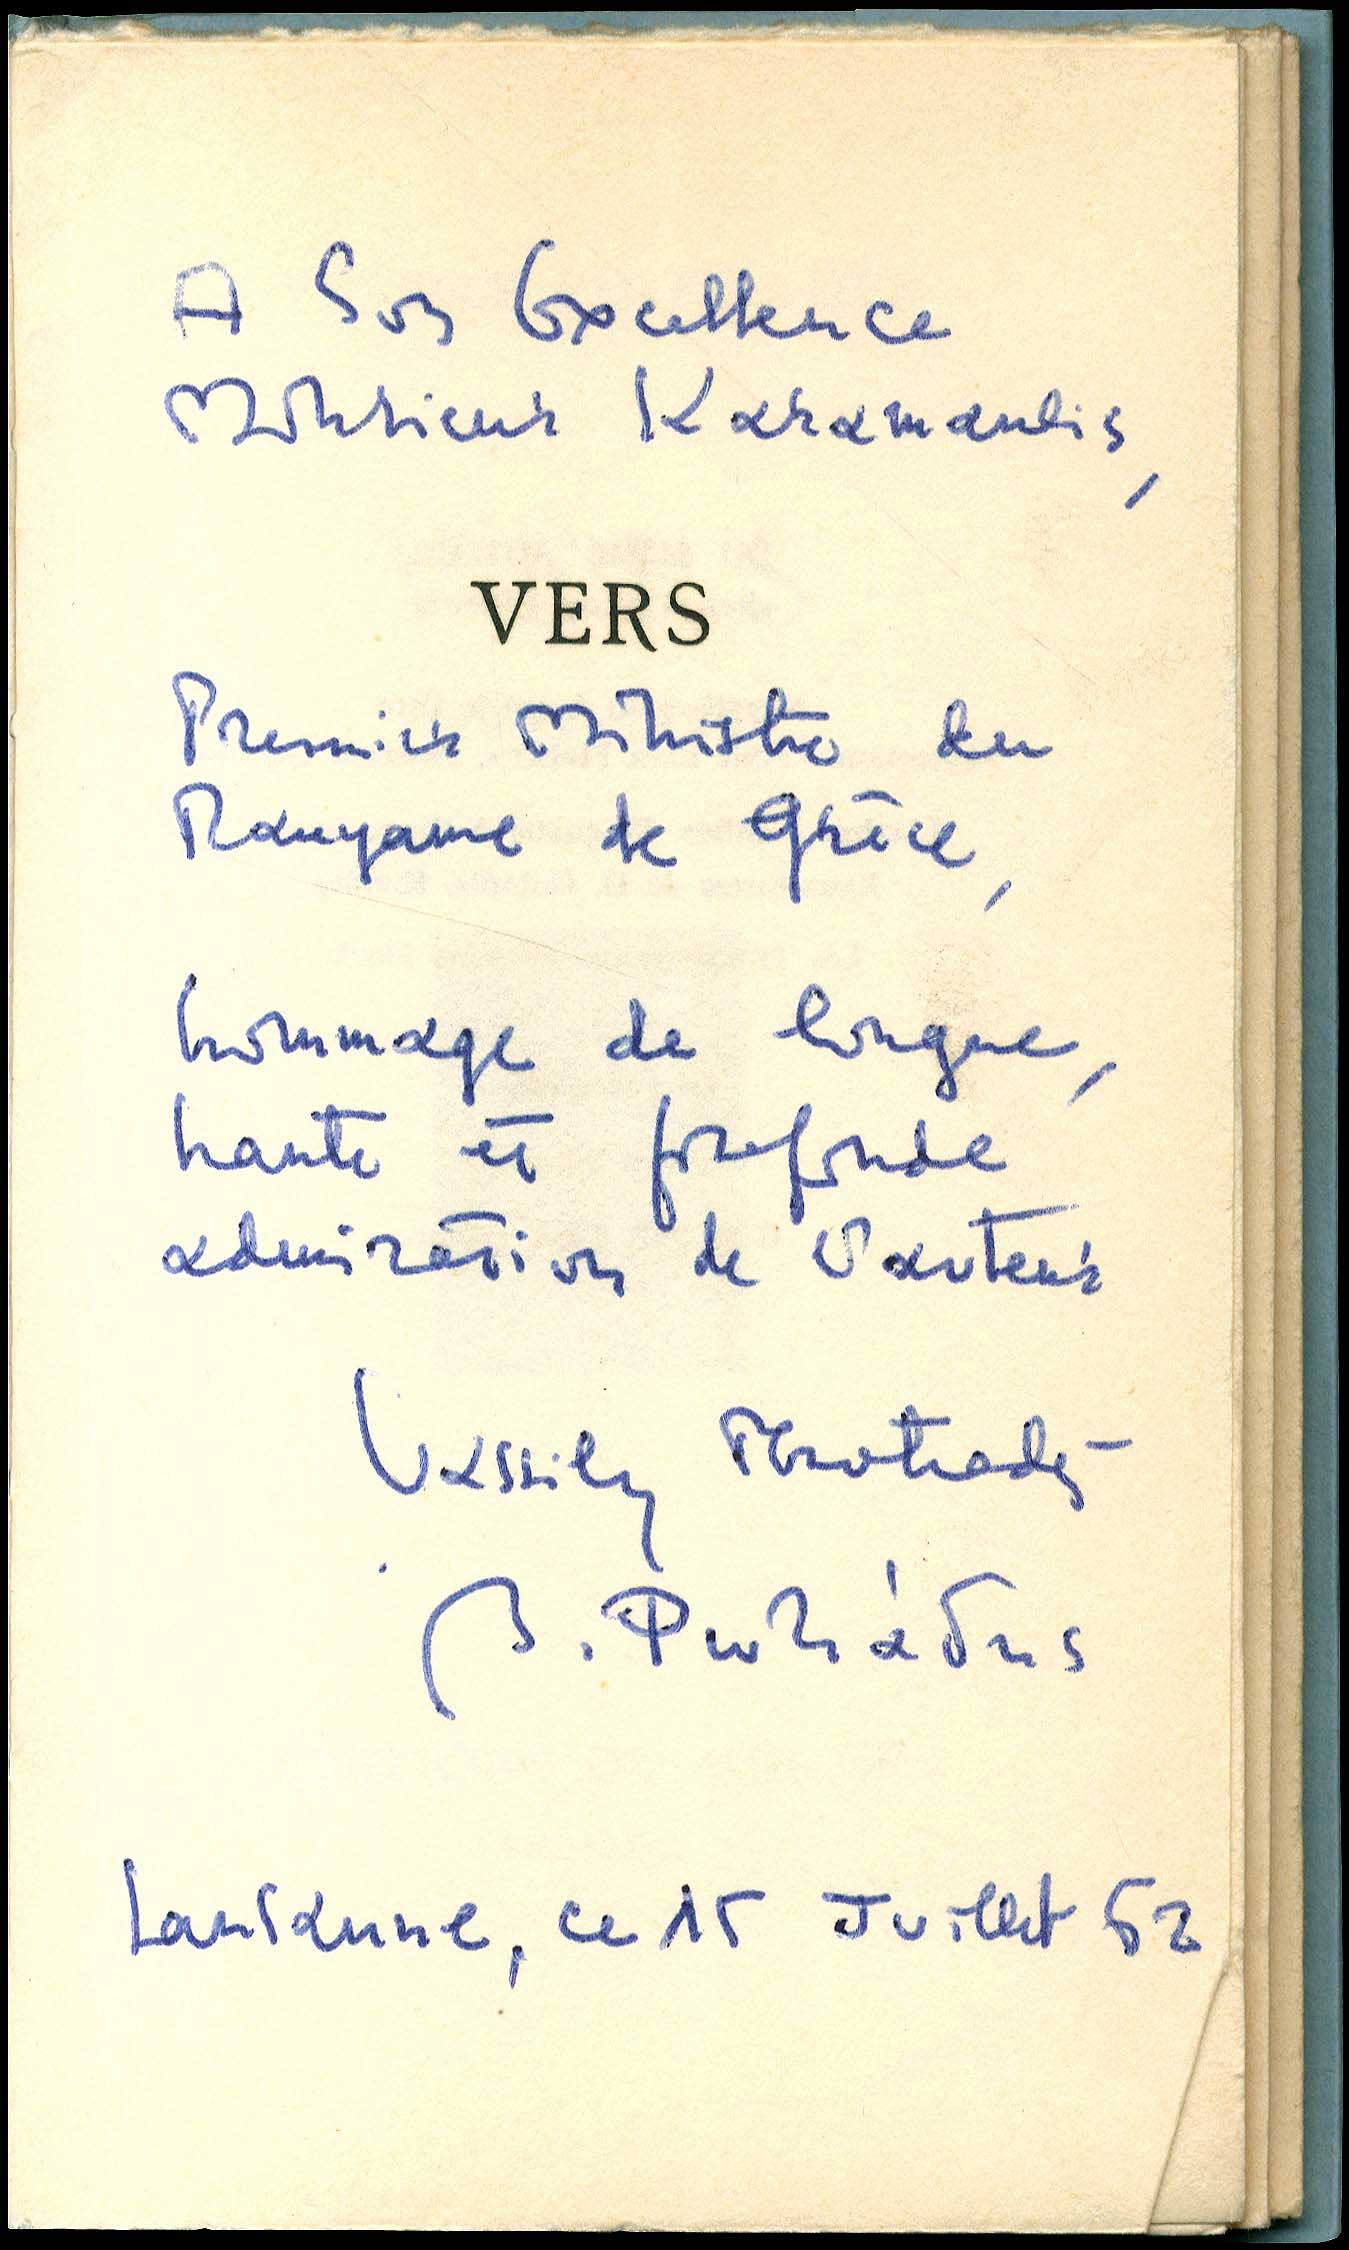 A Son Excellence
Monsieur Karamanlis,
VERS
Premier Ministre du
Royaume de Grèce,
hommage de longue,
haute et profonde
admiration de l'auteur
Vassily Photiadès
Β. Φωτιάδης
Lausanne, ce 15 Juillet 62